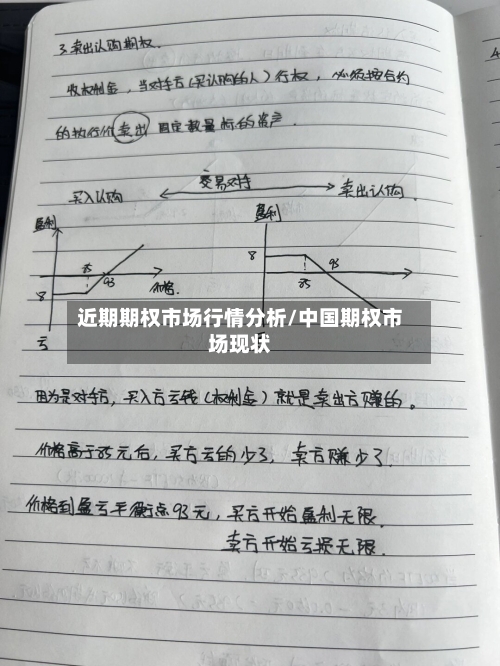 3. 卖出认购期权.
收权利金, 当对手方(买认购的人)行权, 必须按合约
的执行价卖出固定数量标的资产.
买入认购 交易对手 卖出认购.
盈利 盈利
8 85 93 价格. 8 85 93
亏
近期期权市场行情分析/中国期权市
场现状
因为是对手方, 买入方亏钱(权利金)就是卖出方赚的。
价格高于85元后, 买方亏的少了, 卖方赚少了.
价格到盈亏平衡点93元, 买方开始盈利无限.
卖方开始亏损无限.